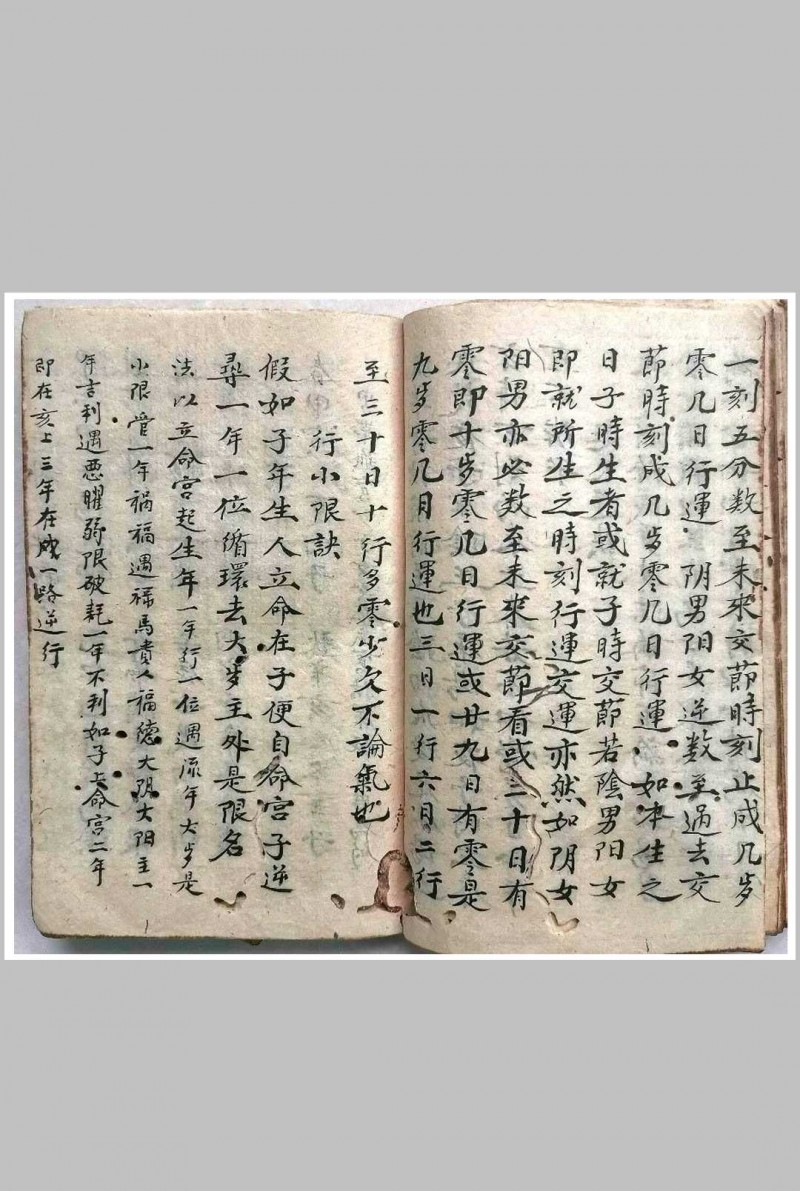 一刻五分数至未來交節時刻止成几岁
零几日行運 阴男阳女逆数至過去交
節時刻成几岁零几日行運 如本生之
日子時生者或就子時交節若陰男阳女
即就所生之時刻行運交運亦然如阴女
阳男亦必数至未來交節看或三十日有
零即十岁零几日行運或廿九日有零是
九岁零几月行運也三日一行六月二行
至三十日十行多零少欠不論氣也
行小限訣
假如子年生人立命在子便自命宫子逆
尋一年一位循環去大岁主外是限名
法以立命宫起生年一年行一位遇流年大岁是
小限管一年祸福遇禄馬貴人福德大阴大阳主一
年吉利遇惡曜弱限破耗一年不利如子上命宫二年
即在亥上三年在戍一路逆行